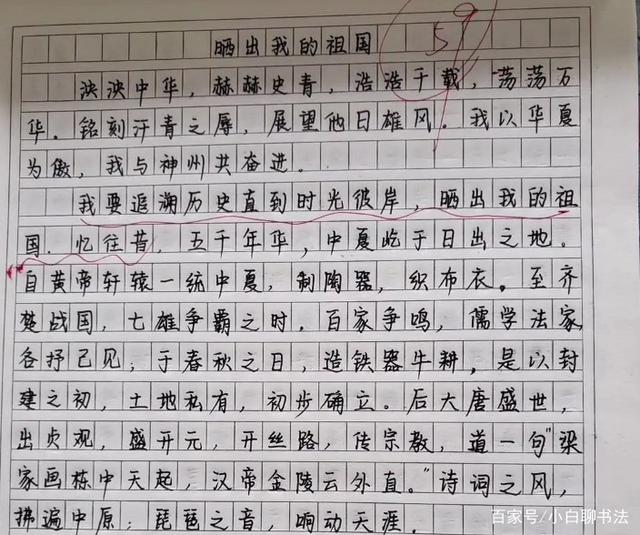 晒出我的祖国 59
泱泱中华，赫赫史青，浩浩千载，荡荡万
华。铭刻汗青之辱，展望他日雄风。我以华夏
为傲，我与神州共奋进。
我要追溯历史直到时光彼岸，晒出我的祖
国。忆往昔，五千年华，中夏屹于日出之地。
自黄帝轩辕一统中夏，制陶器，织布衣。至齐
楚战国，七雄争霸之时，百家争鸣，儒学法家
各抒己见；于春秋之日，造铁器牛耕，是以封
建之初，土地私有，初步确立。后大唐盛世，
出贞观，盛开元，开丝路，传宗教，道一句"梁
家画栋中天起，汉帝金陵云外直。"诗词之风，
拂遍中原；琵琶之音，响动天涯。
百家号/小白聊书法